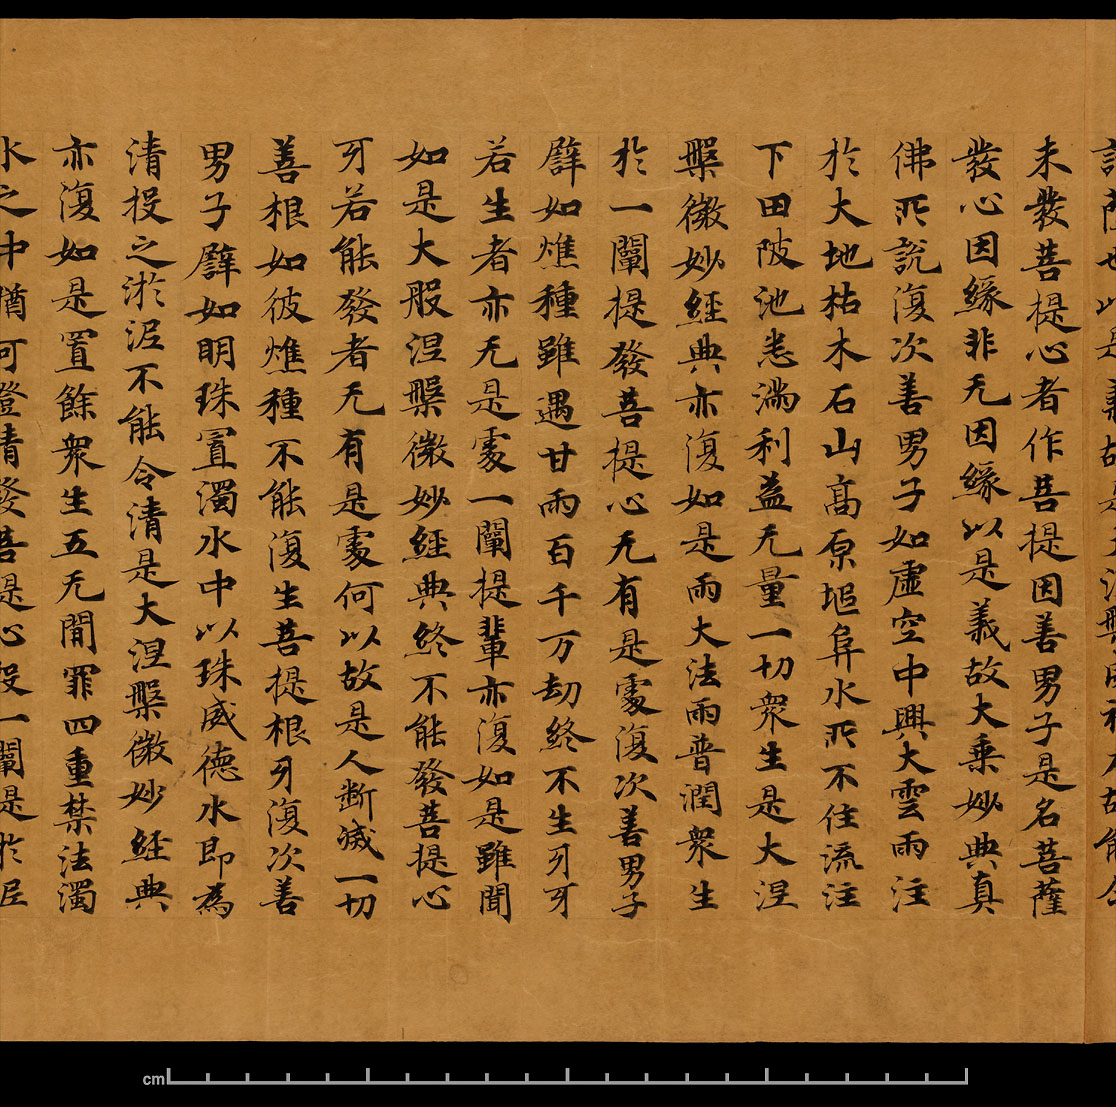 以是義故是大涅槃故能令
未發菩提心者作菩提因善男子是名菩薩
發心因緣非无因緣以是義故大乗妙典真
佛所說復次善男子如虛空中興大雲雨注
於大地枯木石山高原塠阜水所不住流注
下田陂池悉滿利益无量一切衆生是大涅
槃微妙經典亦復如是雨大法雨普潤衆生
於一闡提發菩提心无有是處復次善男子
譬如燋種雖遇甘雨百千万劫終不生牙牙
若生者亦无是處一闡提輩亦復如是雖聞
如是大般涅槃微妙經典終不能發菩提心
牙若能發者无有是處何以故是人断滅一切
善根如彼燋種不能復生菩提根牙復次善
男子譬如明珠置濁水中以珠威德水即為
清投之淤泥不能令清是大涅槃微妙經典
亦復如是置餘衆生五无間罪四重禁法濁
水之中猶可澄清發菩提心投一闡提於泥
cm